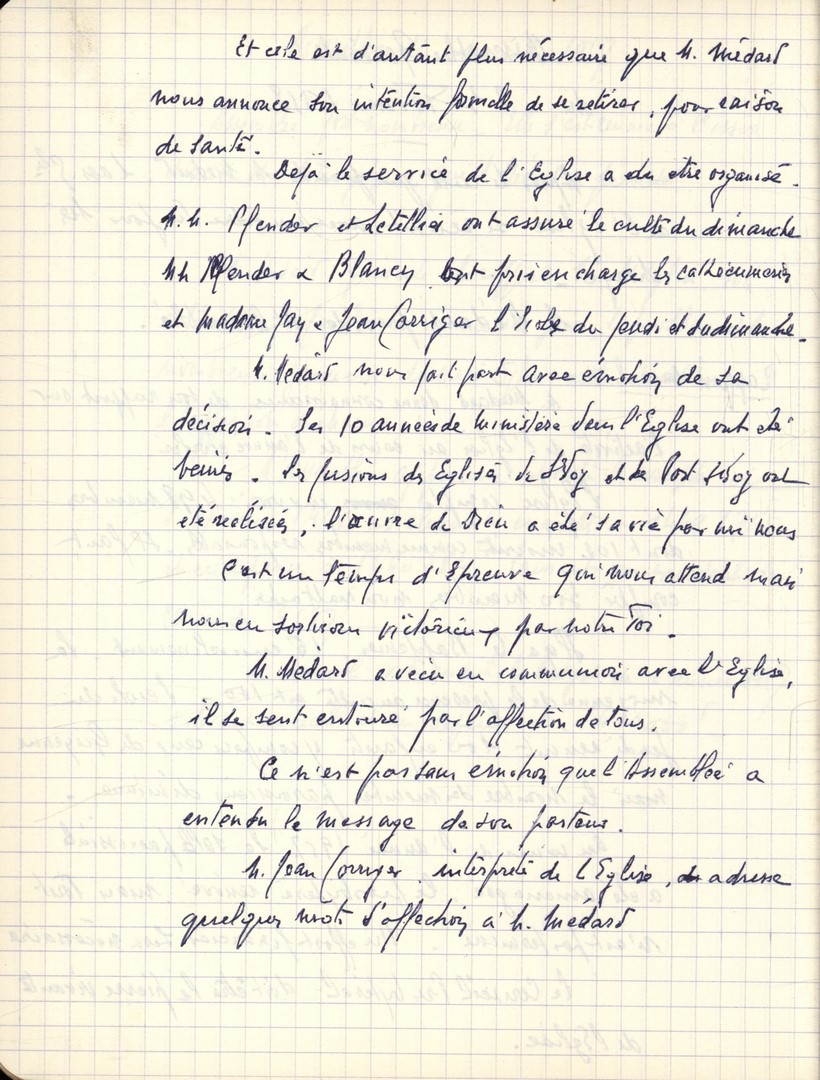 Et cela est d'autant plus nécessaire que M. Médard
nous annonce son intention formelle de se retirer, pour raison
de santé.
Déjà le service de l'Eglise a du etre organisé.
M.M. Pfender et Letellier ont assuré le culte du dimanche
MM Pfender & Blancy ont pris en charge les catéchumènes
et Madame Jay & Jean Corriger l'Ecole du jeudi et du dimanche.
M. Médard nous fait part avec émotion de sa
décision. Les 10 années de ministère dans l'Eglise ont été
bénies. Les fusions des Eglises de et de Port ont
été réalisées, l'œuvre de Dieu a été sa vie parmi nous
C'est un temps d'épreuve qui nous attend mais
nous en sortirons victorieux par notre Foi.
M. Médard a vécu en communion avec l'Eglise,
il se sent entouré par l'affection de tous.
Ce n'est pas sans émotion que l'Assemblée a
entendu le message de son pasteur.
M. Jean Corriger, interprète de l'Eglise, adresse
quelques mots d'affection à M. Médard